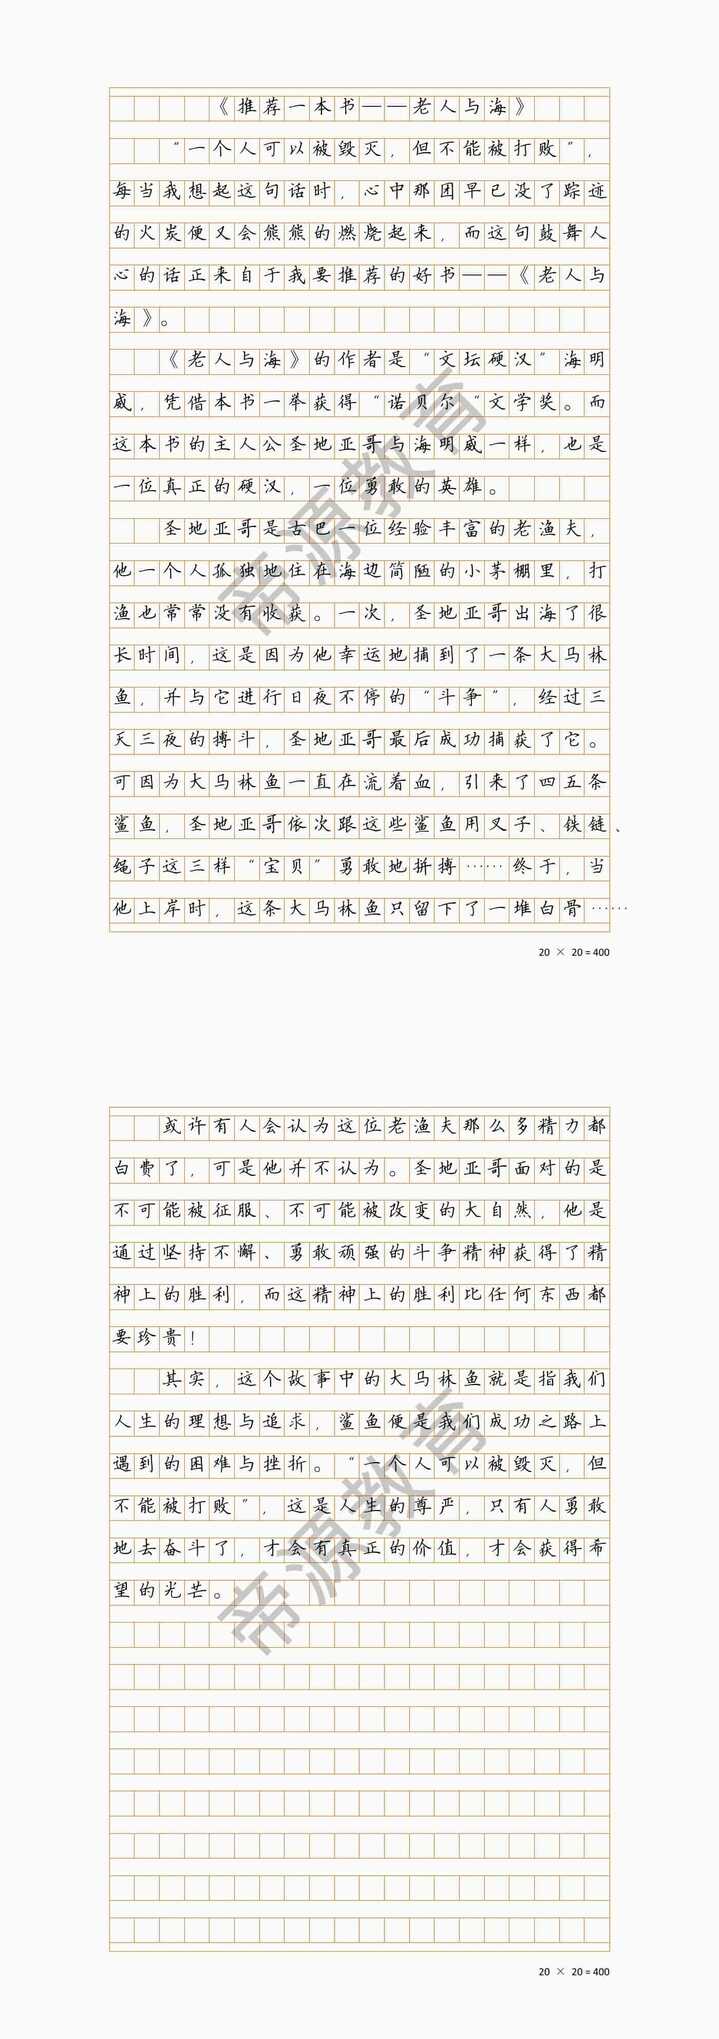 《推荐一本书——老人与海》
“一个人可以被毁灭，但不能被打败”，
每当我想起这句话时，心中那团早已没了踪迹
的火炭便又会熊熊的燃烧起来，而这句鼓舞人
心的话正来自于我要推荐的好书——《老人与
海》。
《老人与海》的作者是“文坛硬汉”海明
威，凭借本书一举获得“诺贝尔“文学奖。而
这本书的主人公圣地亚哥与海明威一样，也是
一位真正的硬汉，一位勇敢的英雄。
圣地亚哥是古巴一位经验丰富的老渔夫，
他一个人孤独地住在海边简陋的小茅棚里，打
渔也常常没有收获。一次，圣地亚哥出海了很
长时间，这是因为他幸运地捕到了一条大马林
鱼，并与它进行日夜不停的“斗争”，经过三
天三夜的搏斗，圣地亚哥最后成功捕获了它。
可因为大马林鱼一直在流着血，引来了四五条
鲨鱼，圣地亚哥依次跟这些鲨鱼用叉子、铁链、
绳子这三样“宝贝”勇敢地拼搏……终于，当
他上岸时，这条大马林鱼只留下了一堆白骨……
20 × 20=400
或许有人会认为这位老渔夫那么多精力都
白费了，可是他并不认为。圣地亚哥面对的是
不可能被征服、不可能被改变的大自然，他是
通过坚持不懈、勇敢顽强的斗争精神获得了精
神上的胜利，而这精神上的胜利比任何东西都
要珍贵！
其实，这个故事中的大马林鱼就是指我们
人生的理想与追求，鲨鱼便是我们成功之路上
遇到的困难与挫折。“一个人可以被毁灭，但
不能被打败”，这是人生的尊严，只有人勇敢
地去奋斗了，才会有真正的价值，才会获得希
望的光芒。
20 × 20=400
帝源教育
帝源教育